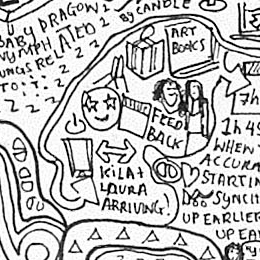 BABY DRAGON
NYMPH
RELATED
TO:
BY CANDLE
ART
BOOKS
FEED
BACK
KILA +
LAURA
ARRIVING!
7h
1h 45
WHEN
ACCURA
STARTIN
SYNCH
UP EARLIER
UP EA